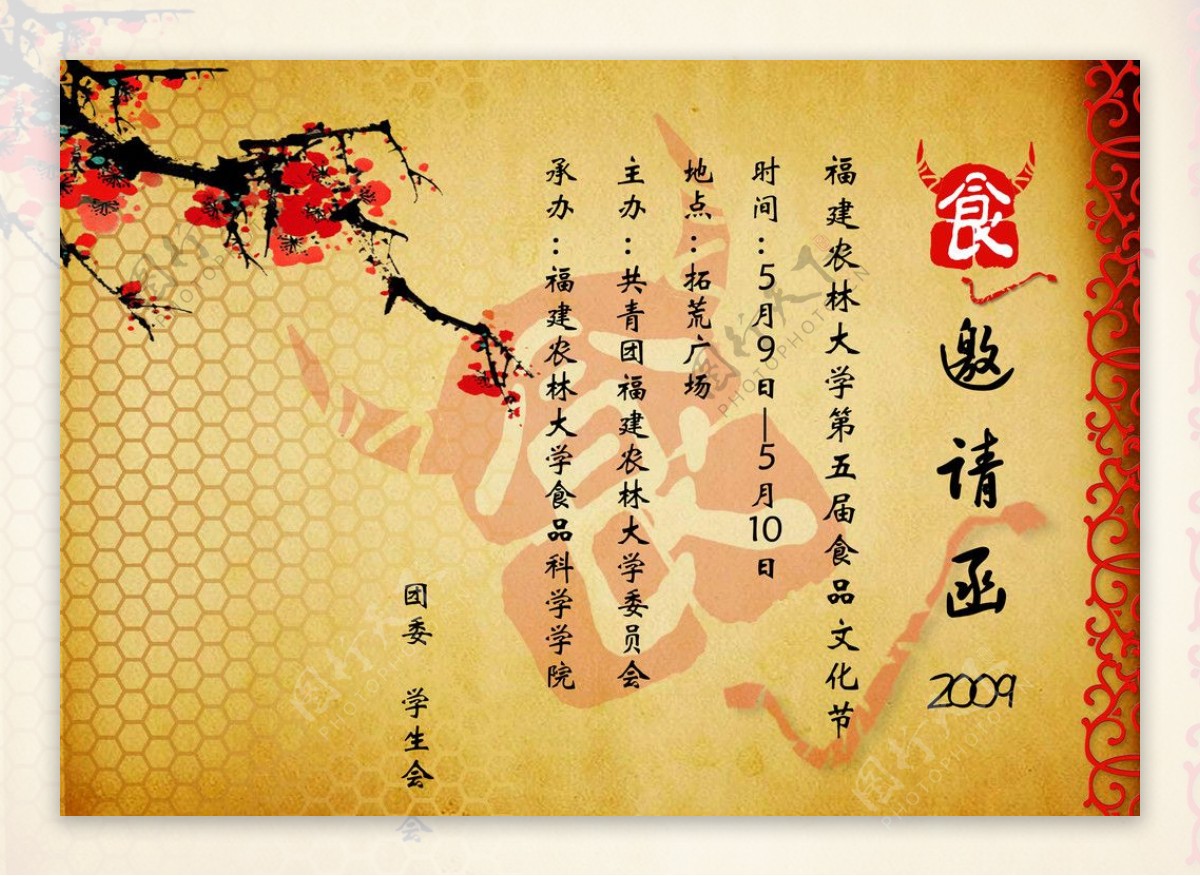 食
邀请函
2009
福建农林大学第五届食品文化节
时间：5月9日—5月10日
地点：拓荒广场
主办：共青团福建农林大学委员会
承办：福建农林大学食品科学学院
团委 学生会